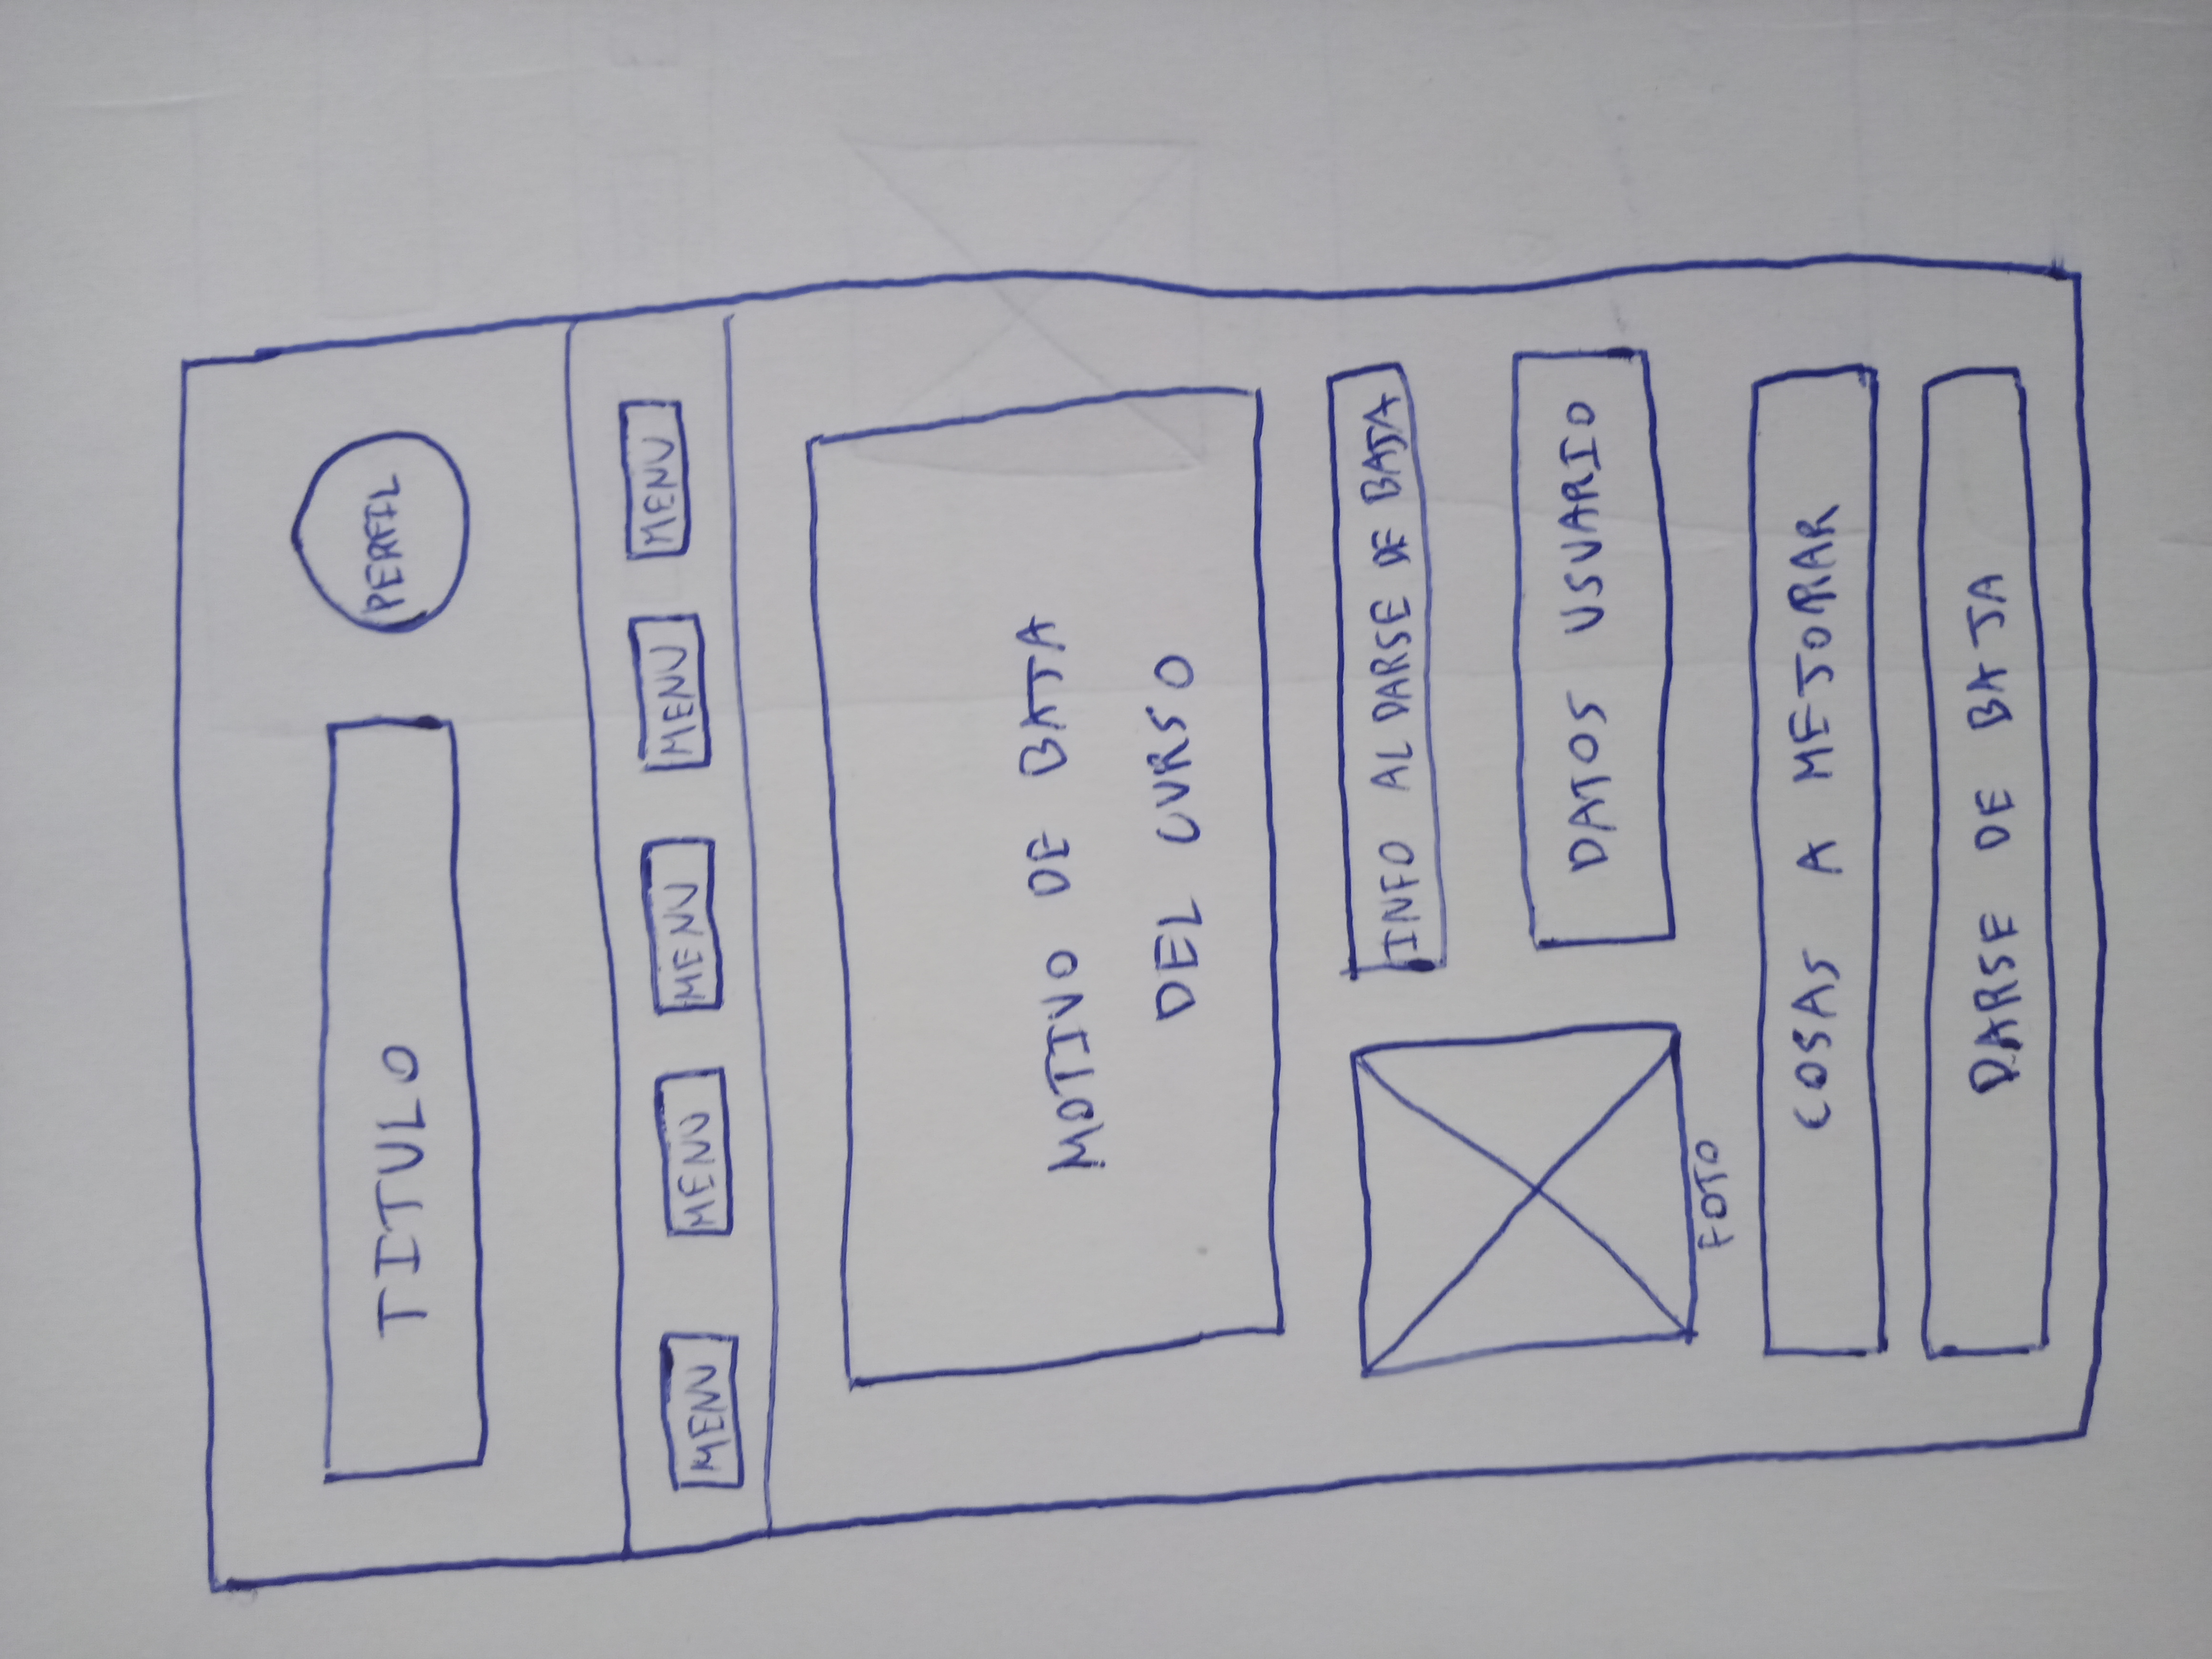 TITULO
PERFIL
MENU MENU MENU MENU MENU
MOTIVO DE BAJA
DEL CURSO
INFO AL DARSE DE BAJA
DATOS USUARIO
FOTO
COSAS A MEJORAR
DARSE DE BAJA